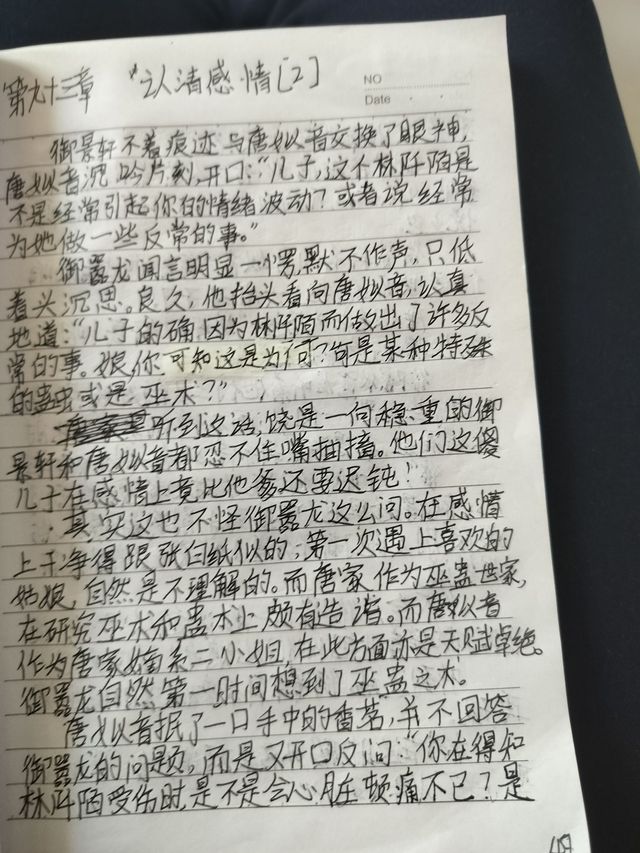 第九十三章 "认清感情[2]
NO
Date
御景轩不着痕迹与唐姒音交换了眼神,
唐姒音沉吟片刻,开口:"儿子,这个林阡陌是
不是经常引起你的情绪波动?或者说经常
为她做一些反常的事。"
御嚣龙闻言明显一愣,默不作声,只低
着头沉思。良久,他抬头看向唐姒音,认真
地道:"儿子的确因为林阡陌而做出了许多反
常的事。娘,你可知这是为何?可是某种特殊
的蛊虫或是巫术?"
听到这话,饶是一向稳重的御
景轩和唐姒音都忍不住嘴抽搐。他们这傻
儿子在感情上竟比他爹还要迟钝!
其实这也不怪御嚣龙这么问。在感情
上干净得跟张白纸似的,第一次遇上喜欢的
姑娘,自然是不理解的。而唐家作为巫蛊世家,
在研究巫术和蛊术上颇有造诣。而唐姒音
作为唐家嫡系二小姐,在此方面亦是天赋卓绝。
御嚣龙自然第一时间想到了巫蛊之术。
唐姒音抿了一口手中的香茗,并不回答
御嚣龙的问题,而是又开口反问:"你在得知
林阡陌受伤时,是不是会心脏顿痛不已?是